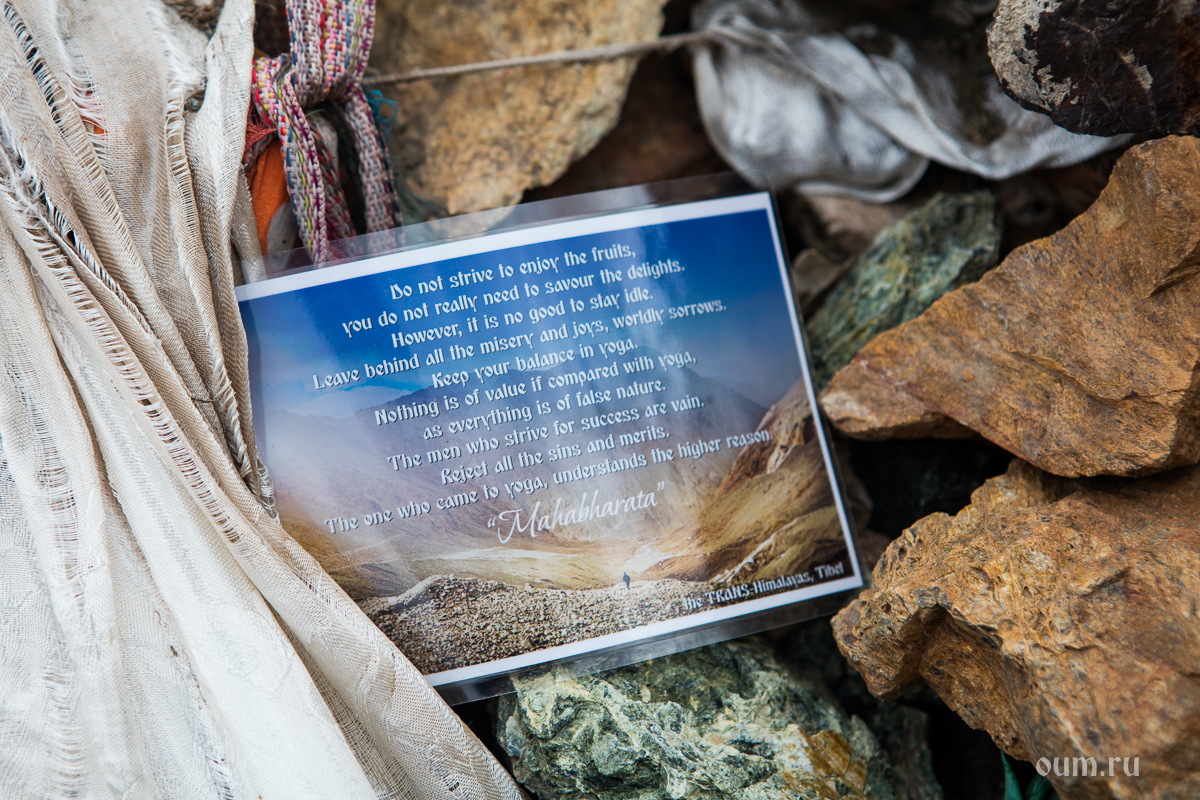 Do not strive to enjoy the fruits,
you do not really need to savour the delights.
However, it is no good to stay idle.
Leave behind all the misery and joys, worldly sorrows.
Keep your balance in yoga.
Nothing is of value if compared with yoga,
as everything is of false nature.
The men who strive for success are vain.
Reject all the sins and merits.
The one who came to yoga, understands the higher reason.
"Mahabharata"
the TRANS-Himalayas, Tibet
oum.ru